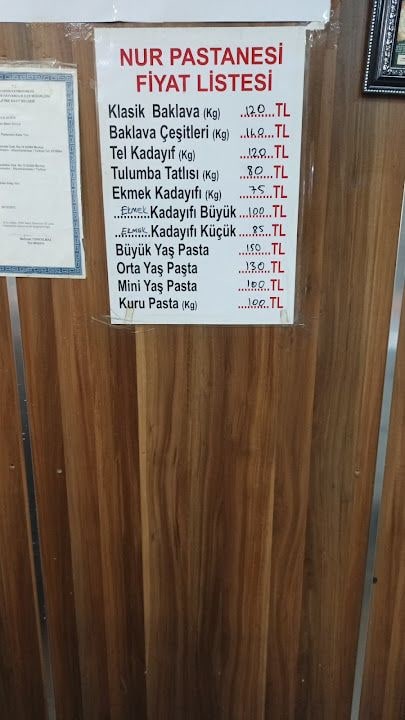 NUR PASTANESİ
FİYAT LİSTESİ
Klasik Baklava (Kg) ...120...TL
Baklava Çeşitleri (Kg) ...160...TL
Tel Kadayıf (Kg) ...120...TL
Tulumba Tatlısı (Kg) ...80...TL
Ekmek Kadayıfı (Kg) ...75...TL
...Ekmek...Kadayıfı Büyük ...100...TL
...Ekmek...Kadayıfı Küçük ...85...TL
Büyük Yaş Pasta ...150...TL
Orta Yaş Paşta ...130...TL
Mini Yaş Pasta ...100...TL
Kuru Pasta (Kg) ...100...TL